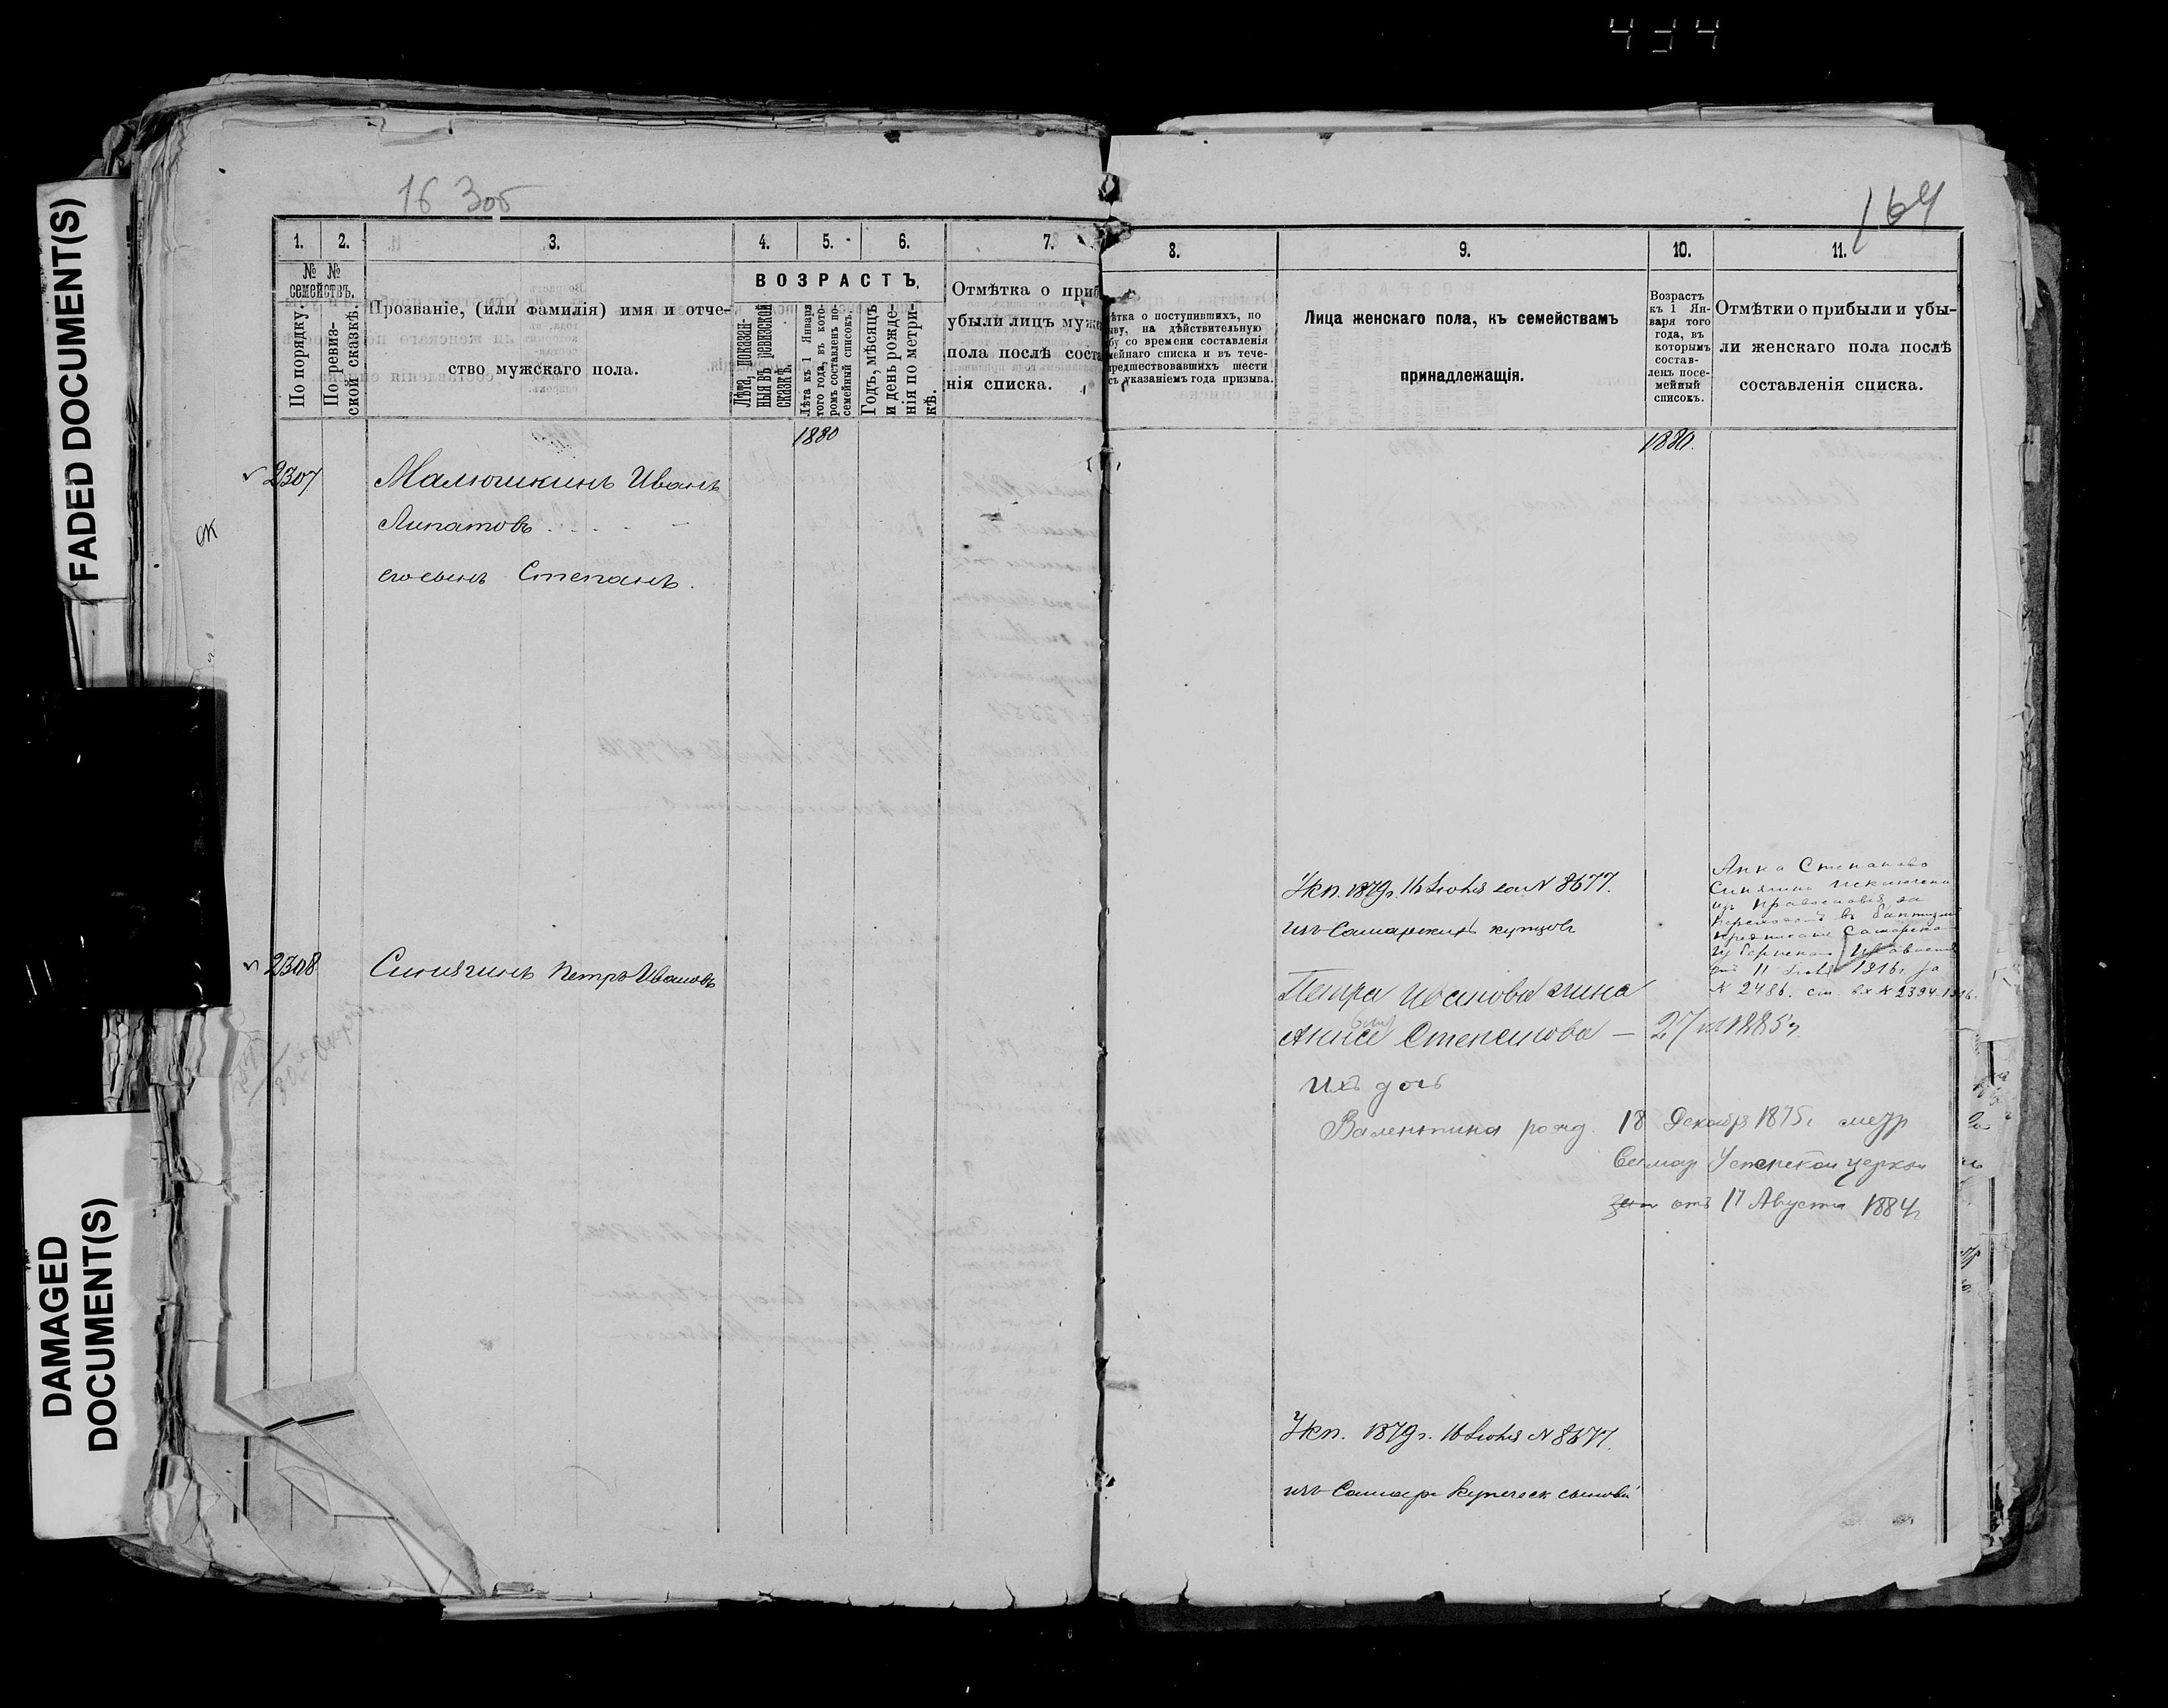 434
FADED DOCUMENT(S)
DAMAGED
DOCUMENT(S)
16 Зоб
164
1. 2. 3. 4. 5. 6. 7.
№ №
семействъ.
По порядку.
По ревиз-
ской сказкѣ.
Прозваніе, (или фамилія) имя и отче-
ство мужскаго пола.
ВОЗРАСТЪ.
Лѣта, показан-
ныя въ ревизской
сказкѣ.
Лѣта къ 1 Января
того года, въ кото-
ромъ составленъ по-
семейный списокъ.
Годъ, мѣсяцъ
и день рожде-
нія по метри-
кѣ.
Отмѣтка о приб
убыли лицъ муж
пола послѣ соста
нія списка.
1880
2307
Малюшкинъ Иванъ
Липатовъ
его сынъ Степанъ.
2308
Синягинъ Петръ Ивановъ
8. 9. 10. 11.
ѣтка о поступившихъ, по
ыву, на дѣйствительную
бу со времени составленія
мейнаго списка и въ тече-
предшествовавшихъ шести
съ указаніемъ года призыва.
Лица женскаго пола, къ семействамъ
принадлежащія.
Возрастъ
къ 1 Ян-
варя того
года, въ
которымъ
состав-
ленъ посе-
мейный
списокъ.
Отмѣтки о прибыли и убы-
ли женскаго пола послѣ
составленія списка.
1880.
Укп. 1879г. 16 Іюня за N 8677.
изъ Самарскихъ купцовъ
Анна Степанова
Синягина исключена
изъ православія за
переходомъ въ баптизмъ
Самарско
губернскаго
11 1916г. за
N 2486. ст. вх N 2394-1916.
Петра Иванова жина
Анна Степанова — 27 1885г.
ихъ дочь
Валентина рожд. 18 Декабря 1875г метр
Самар Успенской церкви
отъ 17 Августа 1884г
Укп. 1879г. 16 Іюня N 8677.
изъ Самарс Купеческ сыновей